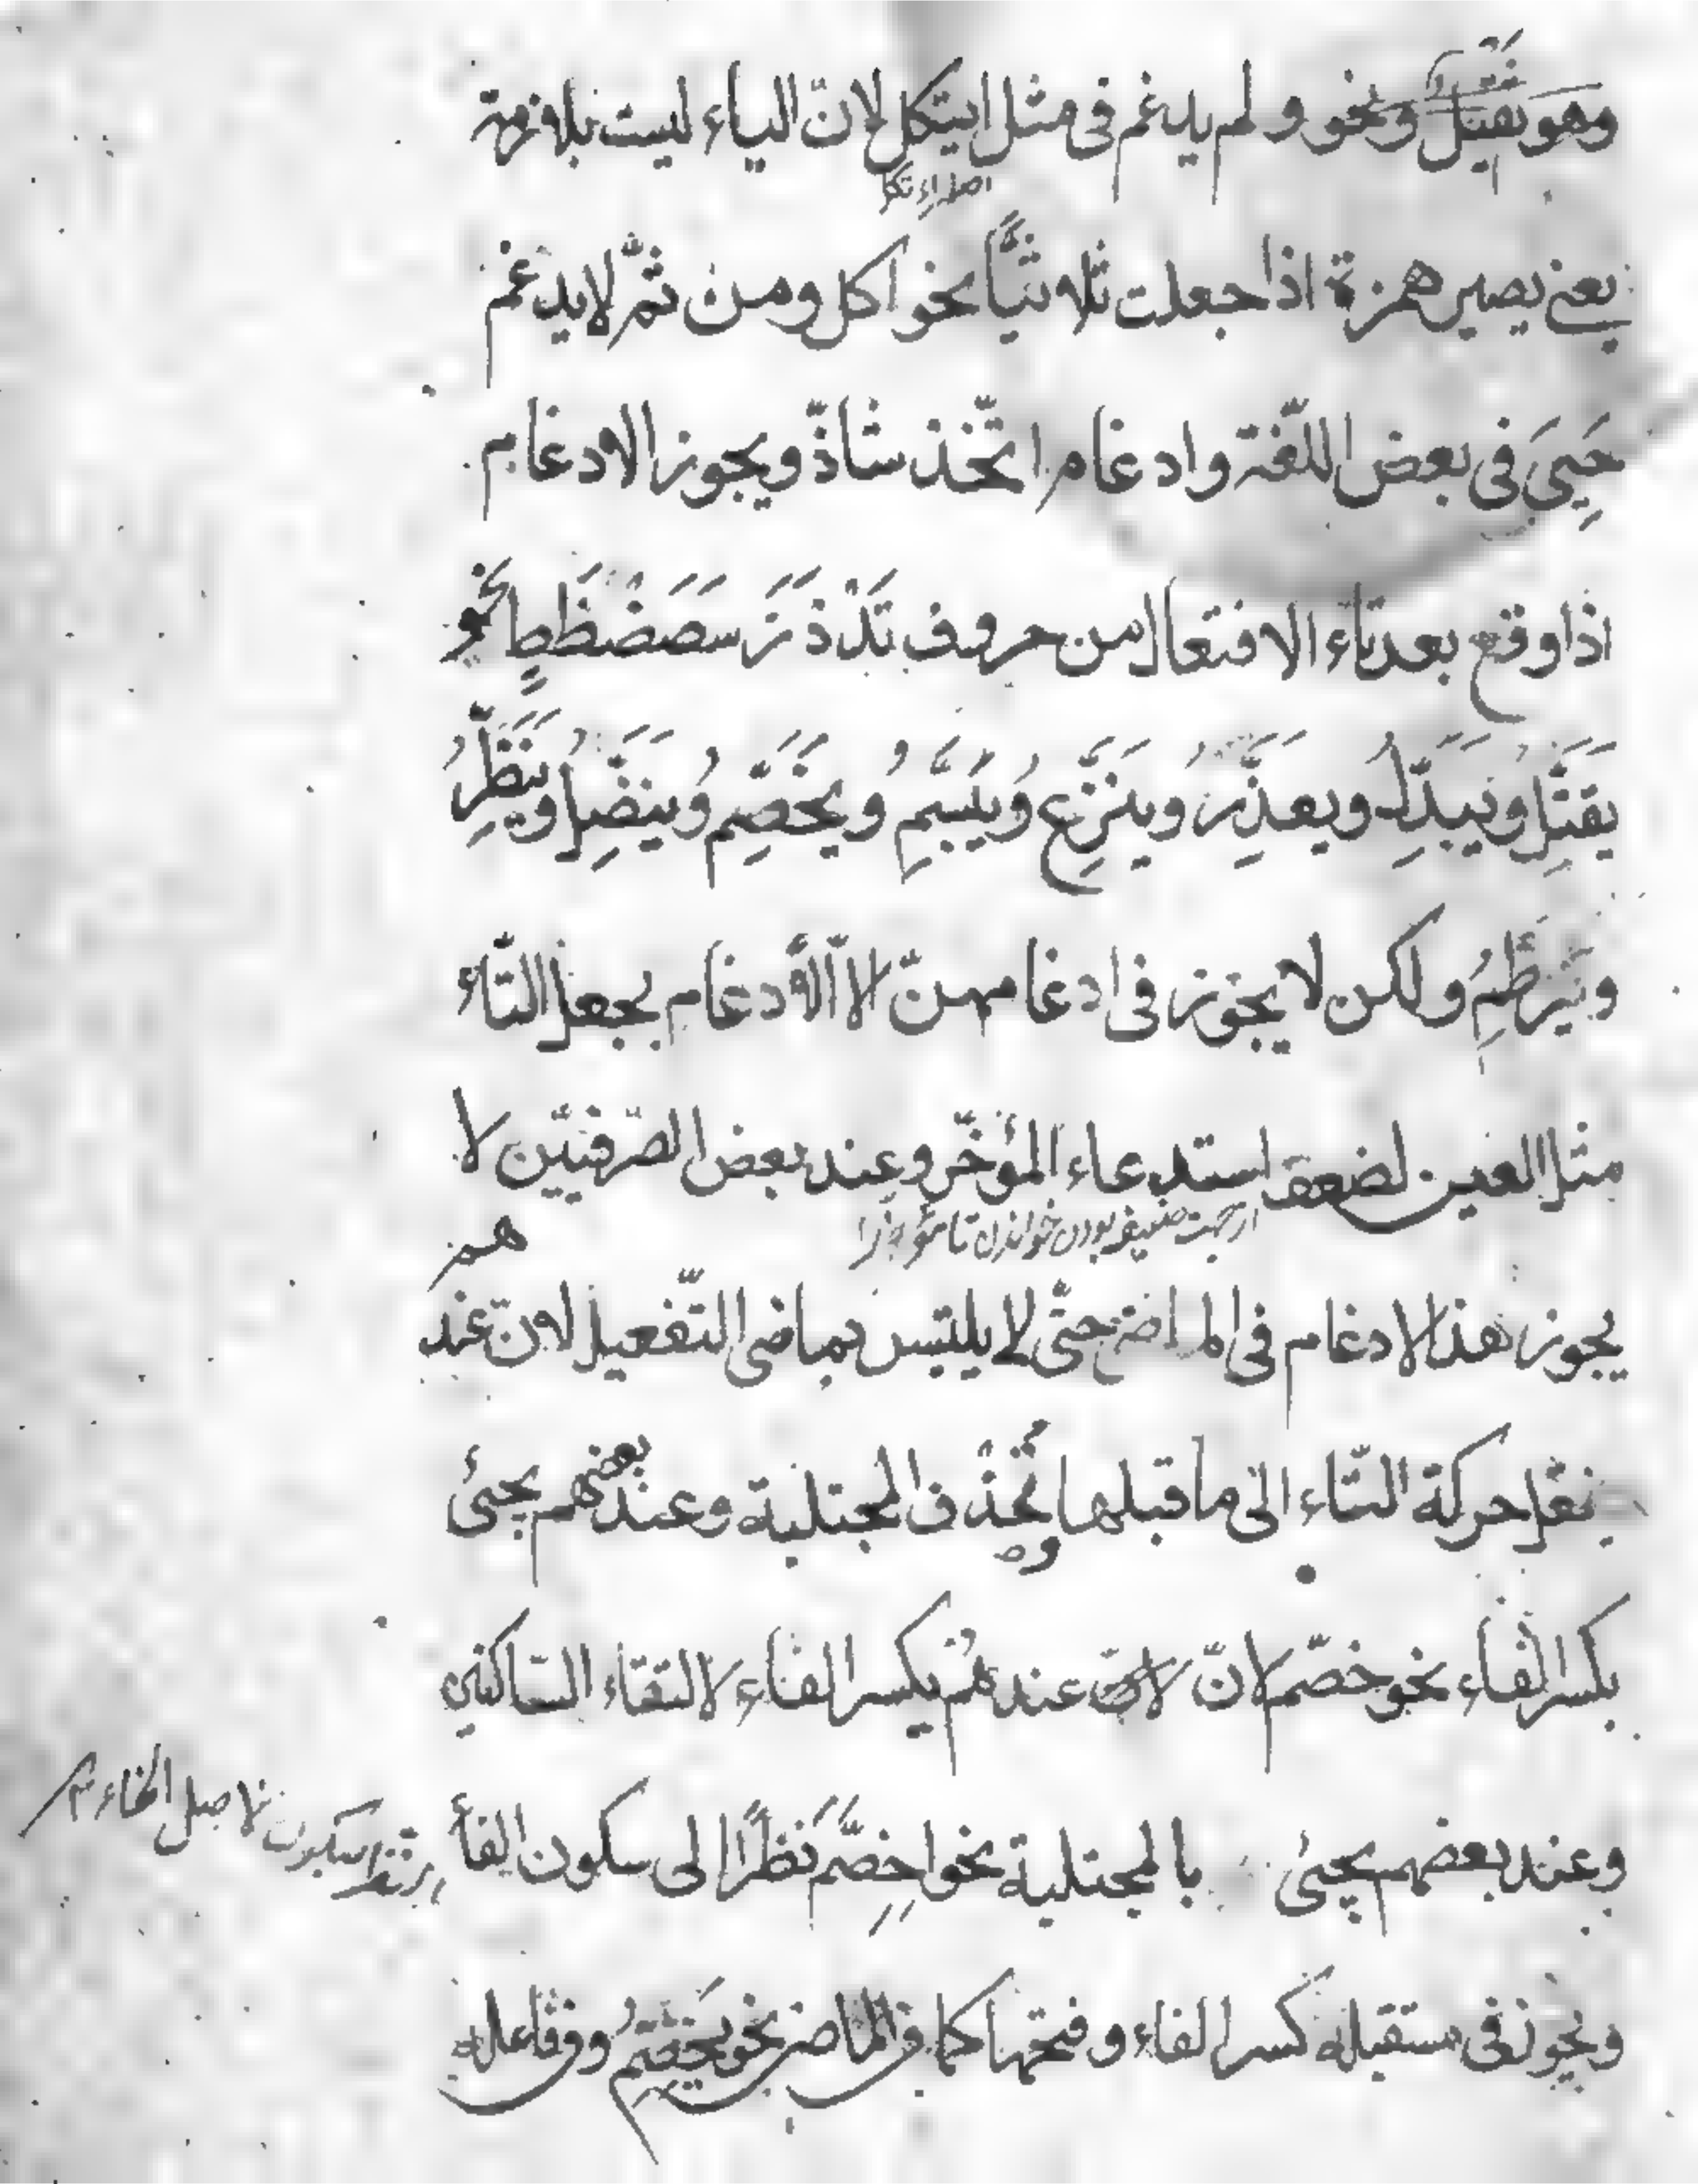 وهو يقتل ونحو ولم يدغم فى مثل ايتكل لانّ الياء ليست بلازمة
يعنى يصير همزة اذا جعلت ثلاثيًّا نحو اكل ومن ثمّ لا يدغم
حَيِيَ فى بعض اللّغة وادغام اتّخذ شاذّ ويجوز الادغام
اذا وقع بعد تاء الافتعال من حروف تَدْذَزَ سَصَضْظَطٍ نحو
يقتّل ويبدّل ويعذّر وينزّع ويبسّم ويخصّم وينضّل وينظّر
ولكن لا يجوز فى ادغامهنّ الّا الادغام بجعل التّاء
مثل العين لضعف استدعاء المؤخّر وعند بعض الصّرفيّين لا
از جهت ضعيف بودن خواندن تا مؤخر را
يجوز هذا الادغام فى الماضى حتّى لا يلتبس بماضى التّفعيل لان عند
هم
نقل حركة التّاء الى ما قبلها وتحذف المجتلبة وعند بعضهم يجئ
بكسر الفاء نحو خصّم لانّ عندهم يكسر الفاء لالتقاء السّاكنين
وعند بعضهم يجئ بالمجتلبة نحو اخِصَّمَ نظرًا الى سكون الفاء
ويجوز فى مستقبله كسر الفاء وفتحها كما فى الماضى نحو يخصّم وفى فاعله